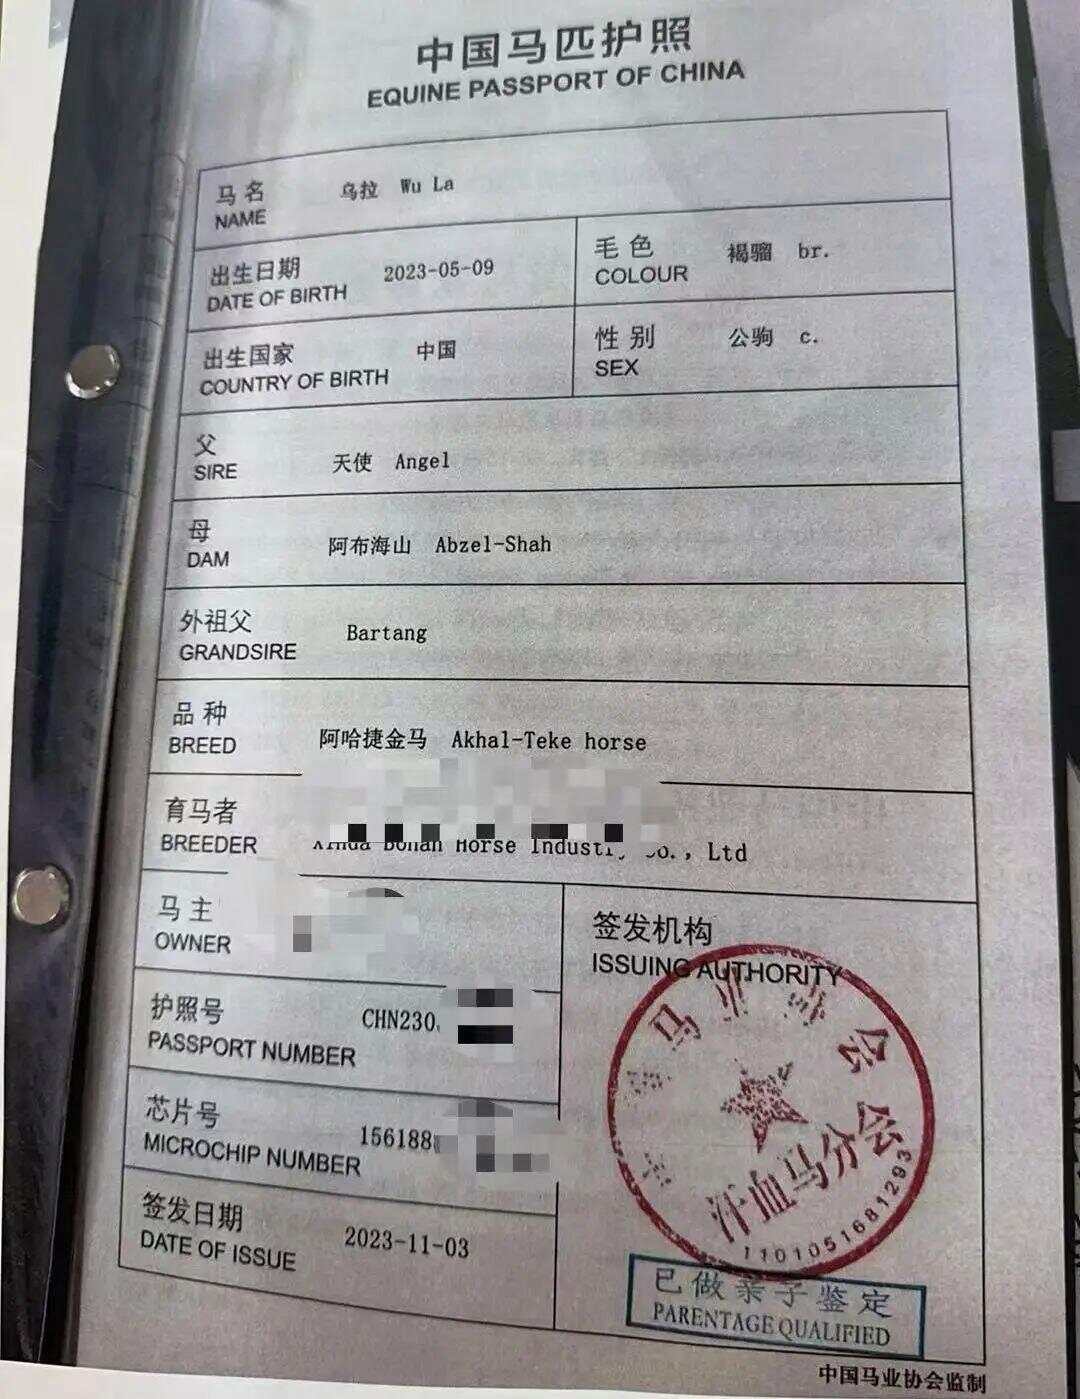 中国马匹护照
EQUINE PASSPORT OF CHINA
马名 乌拉 Wu La
NAME
出生日期 2023-05-09
DATE OF BIRTH
毛色 褐骝 br.
COLOUR
出生国家 中国
COUNTRY OF BIRTH
性别 公驹 c.
SEX
父 天使 Angel
SIRE
母 阿布海山 Abzel-Shah
DAM
外祖父 Bartang
GRANDSIRE
品种 阿哈捷金马 Akhal-Teke horse
BREED
育马者
BREEDER Horse Ltd
马主
OWNER
护照号 CHN230
PASSPORT NUMBER
芯片号 156188
MICROCHIP NUMBER
签发日期 2023-11-03
DATE OF ISSUE
签发机构
ISSUING AUTHORITY
马业协会
汗血马分会
1101051681293
已做亲子鉴定
PARENTAGE QUALIFIED
中国马业协会监制